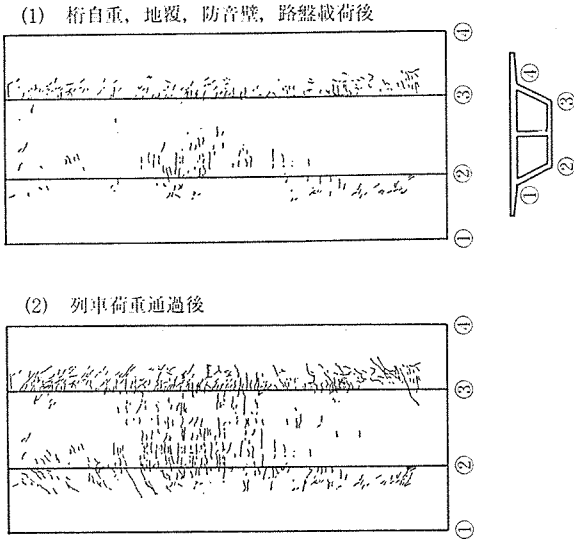 (1) 桁自重，地覆，防音壁，路盤載荷後
④
③
②
①
④
③
②
①
(2) 列車荷重通過後
④
③
②
①